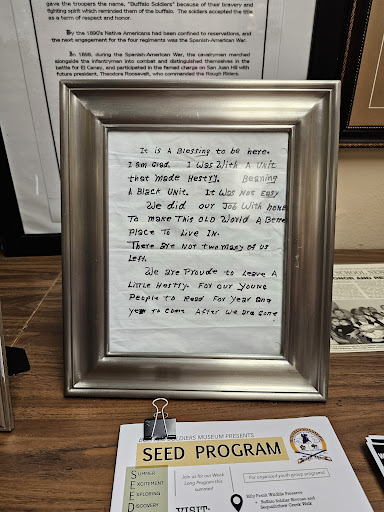 gave the troopers the name, "Buffalo Soldiers" because of their bravery and
fighting spirit which reminded them of the buffalo. The soldiers accepted the title
as a term of respect and honor.
By the 1890's Native Americans had been confined to reservations, and
the next engagement for the four regiments was the Spanish-American War.
In 1898, during the Spanish-American War, the cavalrymen marched
alongside the infantrymen into combat and distinguished themselves in the
battle for El Caney, and participated in the famed charge on San Juan Hill with
future president, Theodore Roosevelt, who commanded the Rough Riders.
It is A Blessing to be here.
I am Glad. I Was With A Unit
that made Hestry. Beaning
A Black Unit. It Was Not Easy
We did our Job With hone
To make This OLD World A Bette
PLace To Live IN.
There Are Not Two many of us
Left.
We Are Proude to Leave A
Little Hestry. For our Young
People to Read For Year and
year to Come After We are Gone
SOLDIERS MUSEUM PRESENTS
SEED PROGRAM
SUMMER
EXCITEMENT
EXPLORING
DISCOVERY
Join us for our Week
Long Program this
summer!
For organized youth group programs!
VISIT: